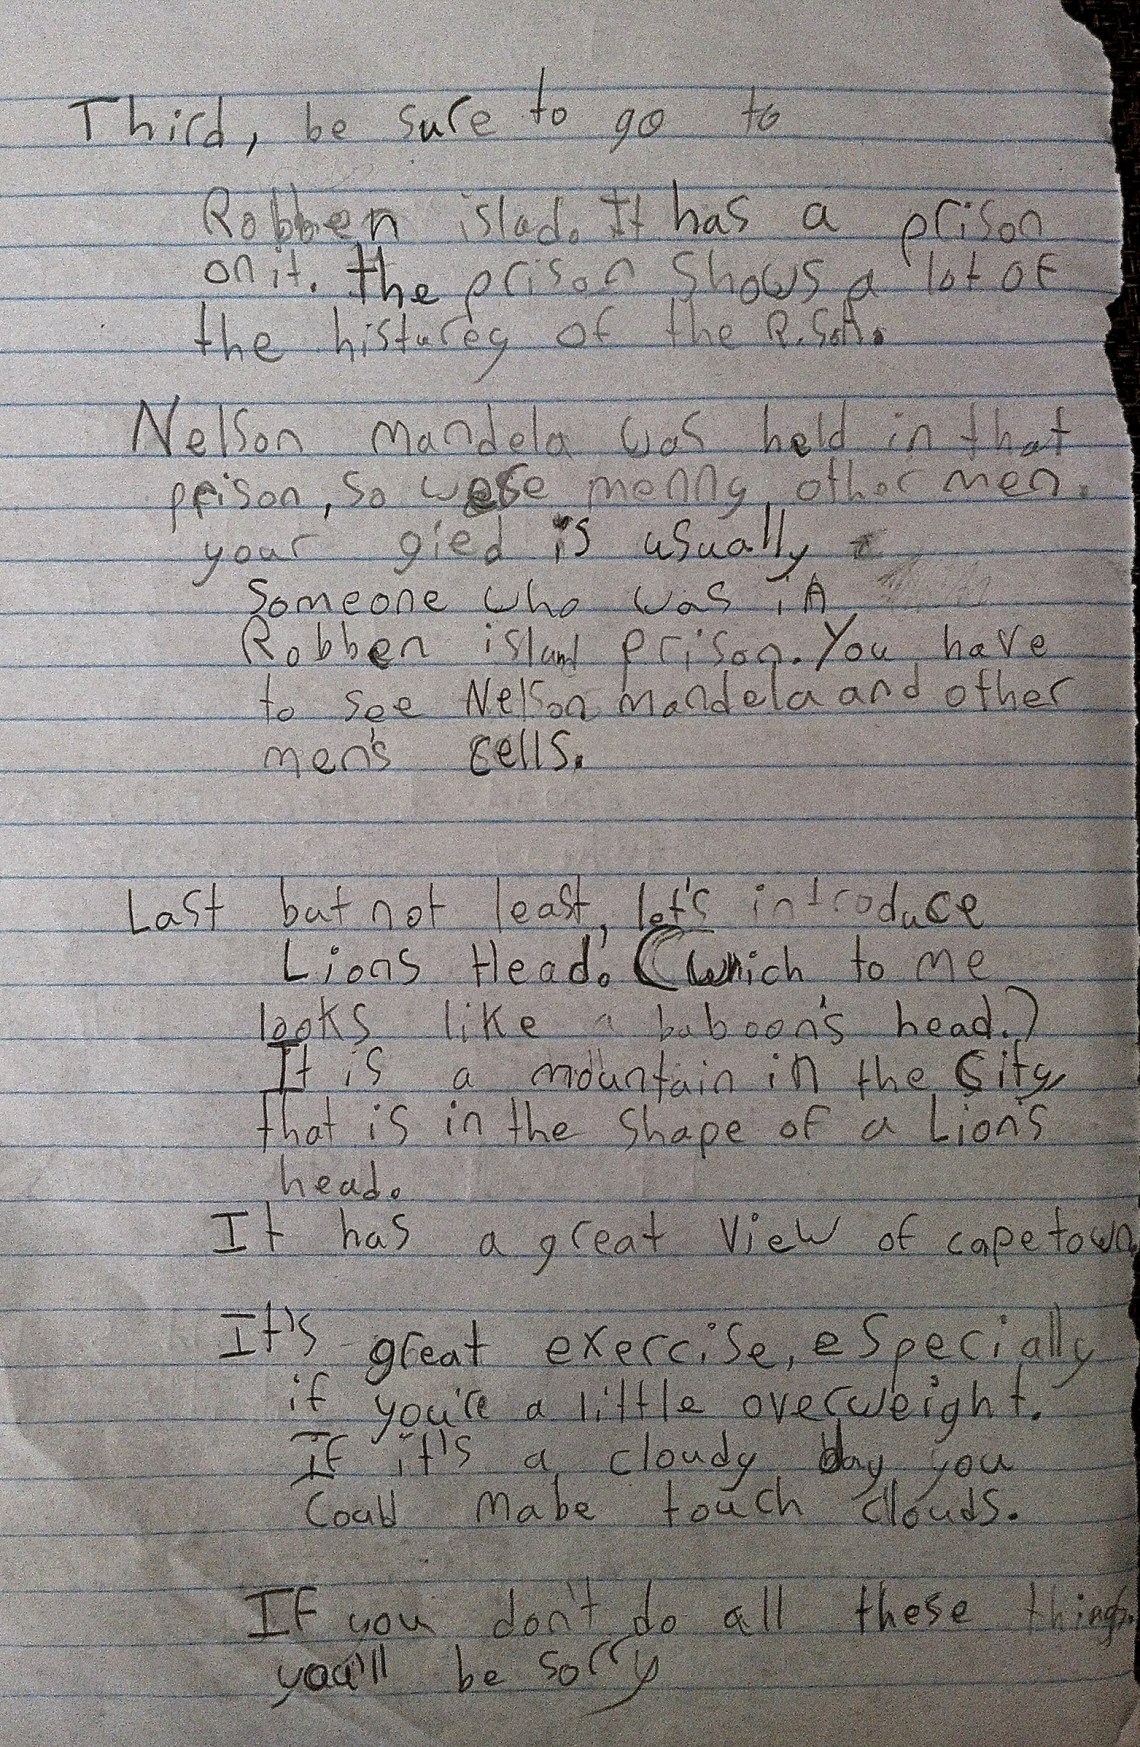 Third, be sure to go to
Robben islad. It has a prison
on it. the prison shows a lot of
the histurey of the P.son.
Nelson mandela was held in that
prison, so were menny other men.
your gied is usually
someone who was in
Robben island prison. You have
to see Nelson mandela and other
men's cells.
Last but not least, let's introduce
Lions Head. (which to me
looks like a baboon's head.)
It is a mountain in the City
that is in the shape of a Lion's
head.
It has a great view of capetown.
It's great exercise, especially
if you're a little overweight.
If it's a cloudy day you
Could mabe touch clouds.
If you don't do all these things
you'll be sorry